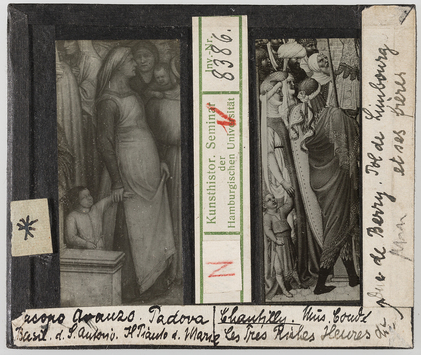 Inv.-Nr.
8386.
Kunsthistor. Seminar
der
Hamburgischen Universität
N
*
Jacopo Avanzo. Padova
Basil. d. S. Antonio. Il Pianto d. Marie
Chantilly. Mus. Condé
Les Très Riches Heures du
Duc de Berry. Pol de Limbourg
et ses frères